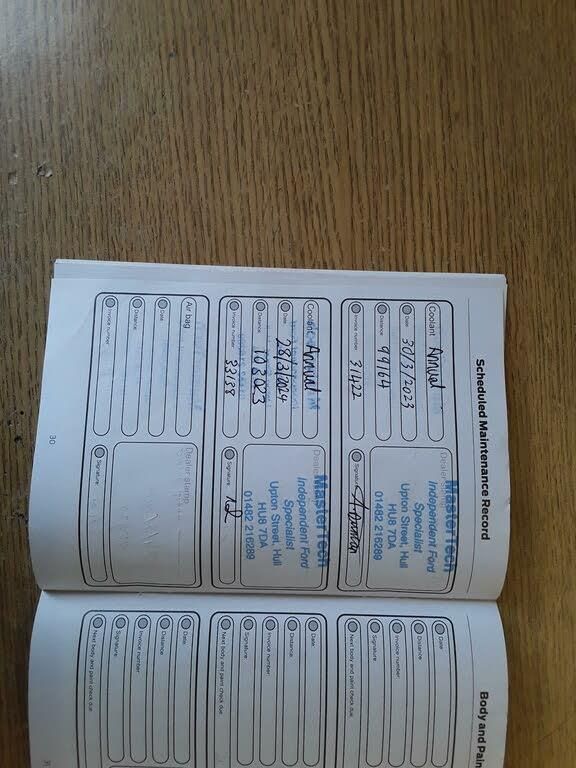 Scheduled Maintenance Record
Coolant Annual
Date 30/3/2023
Distance: 99164
Invoice number: 31422
Deale
MasterTech
Independent Ford
Specialist
Upton Street, Hull
HU8 7DA
01482 216289
Signature:
Coolant Annual
Date 28/3/2024
Distance: 103023
Invoice number: 33138
Deale
MasterTech
Independent Ford
Specialist
Upton Street, Hull
HU8 7DA
01482 216289
Signature:
Air bag
Date:
Distance:
Invoice number:
Dealer stamp
Signature:
30
Body and Pain
Date:
Distance:
Invoice number:
Signature:
Next body and paint check due:
Date:
Distance:
Invoice number:
Signature:
Next body and paint check due:
Date:
Distance:
Invoice number:
Signature:
Next body and paint check due:
31